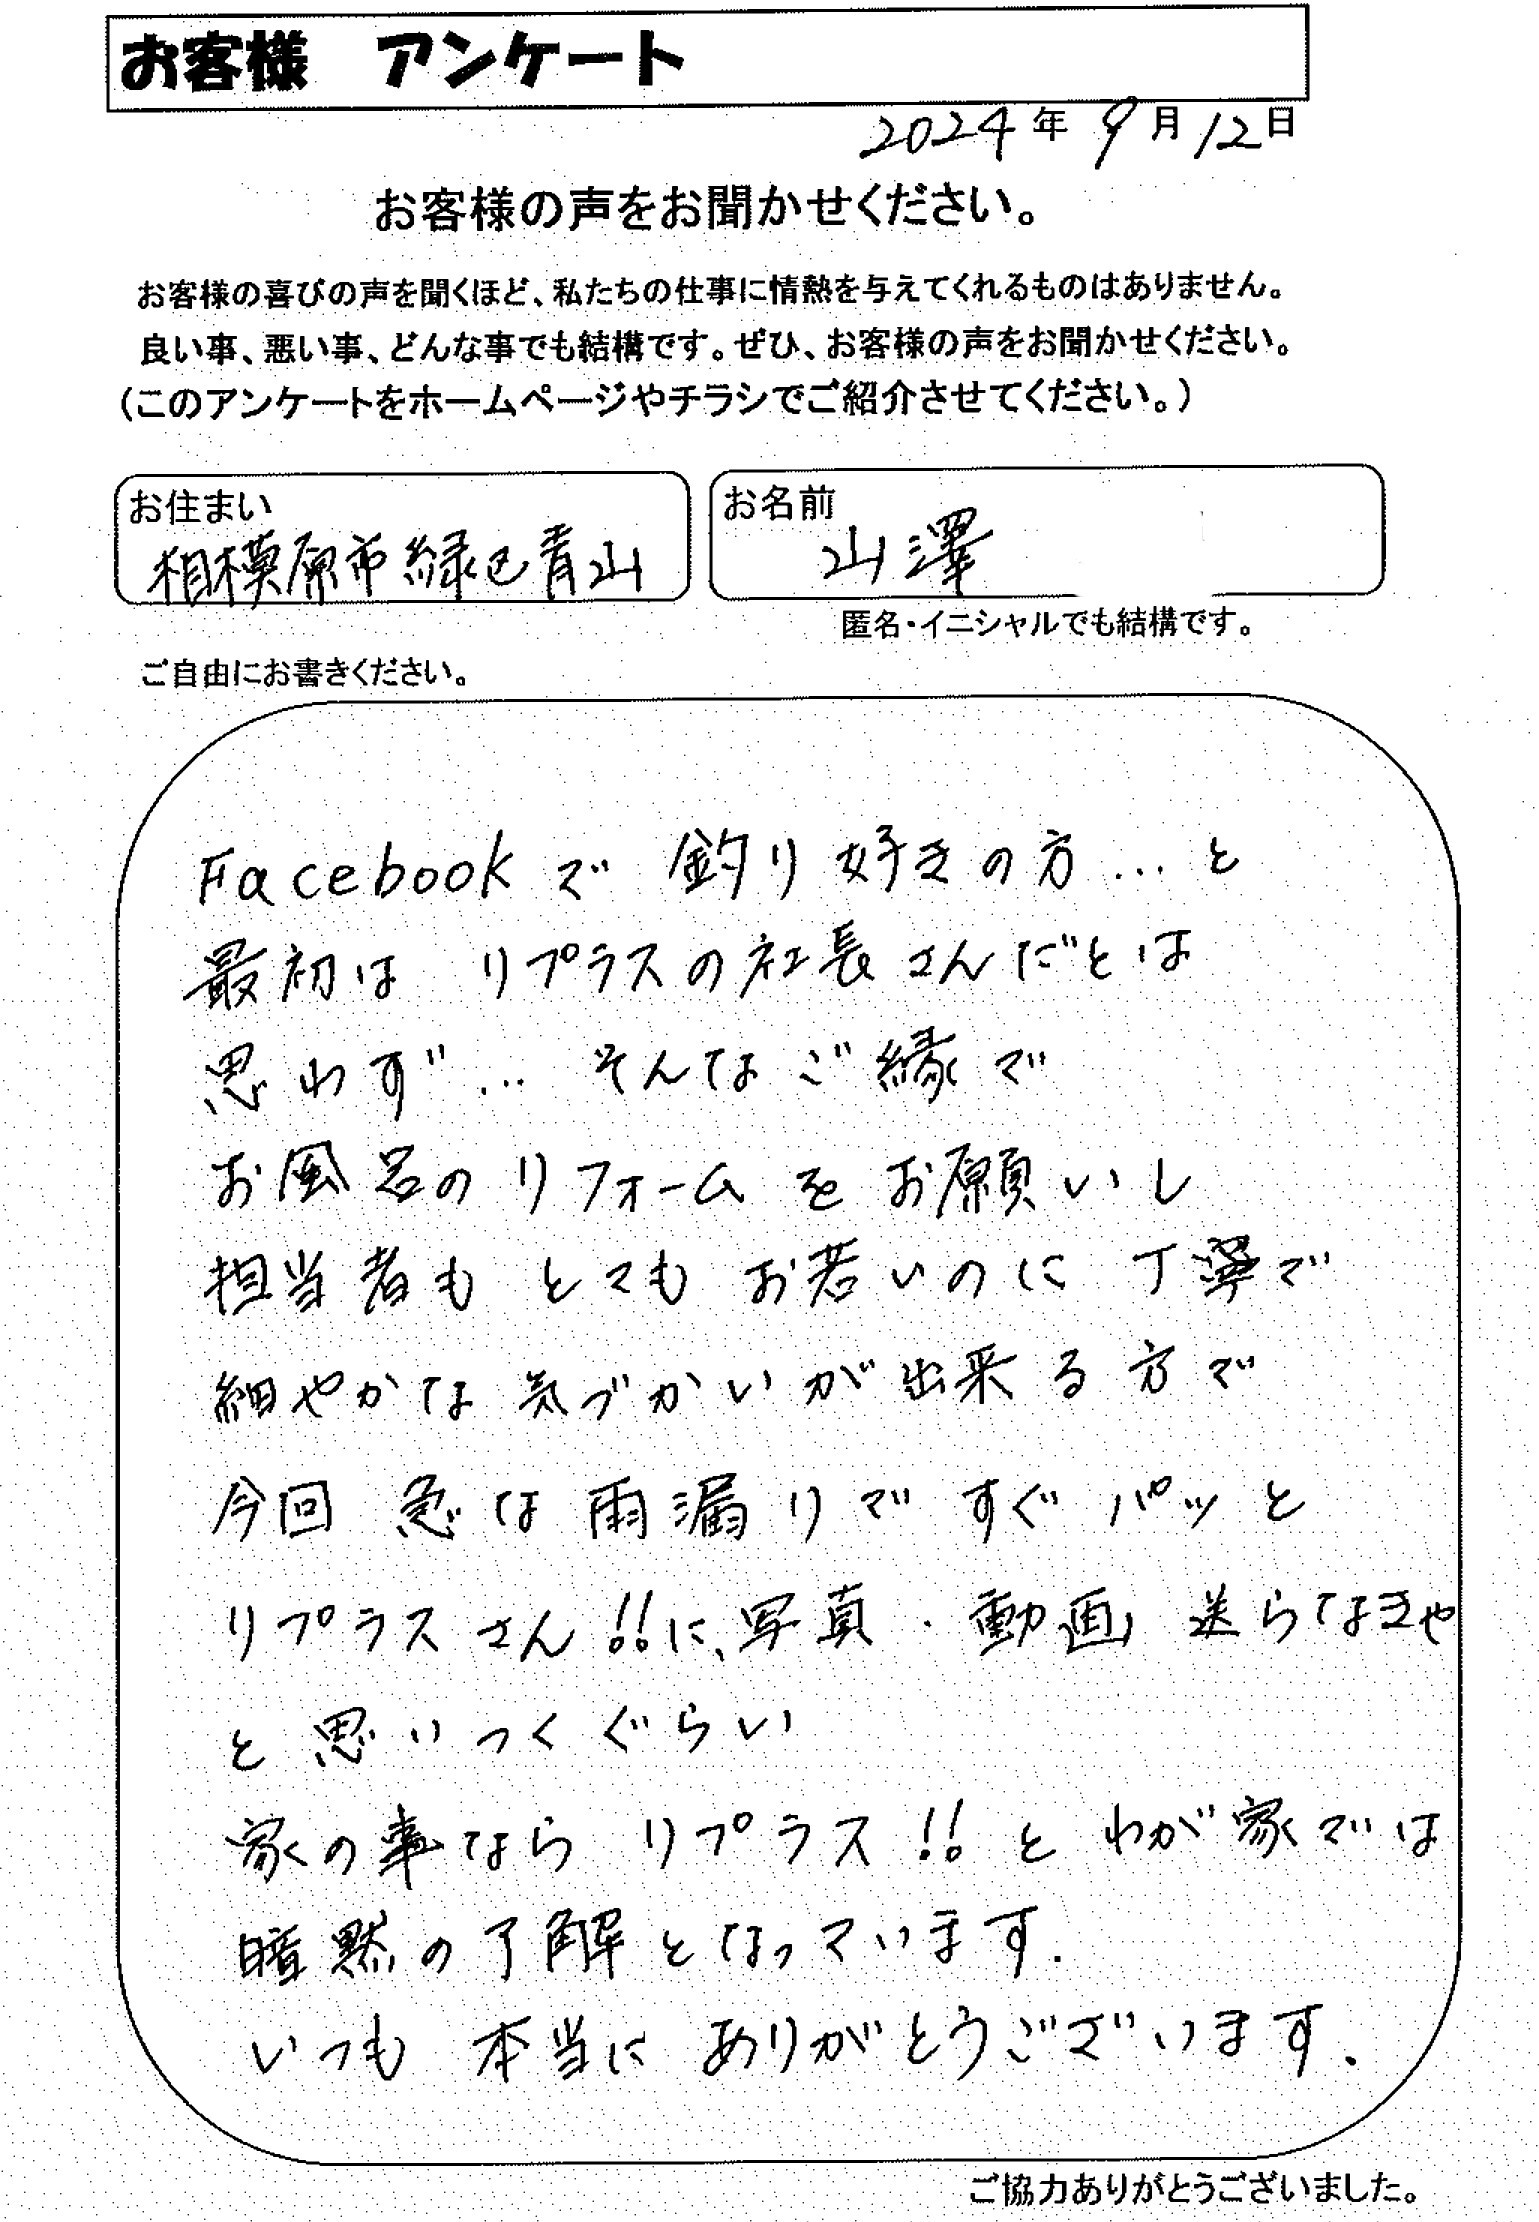 お客様　アンケート
2024年9月12日
お客様の声をお聞かせください。
お客様の喜びの声を聞くほど、私たちの仕事に情熱を与えてくれるものはありません。
良い事、悪い事、どんな事でも結構です。ぜひ、お客様の声をお聞かせください。
(このアンケートをホームページやチラシでご紹介させてください。)
お住まい
相模原市緑区青山
お名前
山澤
匿名・イニシャルでも結構です。
ご自由にお書きください。
Facebookで 釣り好きの方…と
最初は リプラスの社長さんだとは
思わず… そんなご縁で
お風呂のリフォームをお願いし
担当者も とても お若いのに 丁寧で
細やかな気づかいが出来る方で
今回 急な雨漏りで すぐ パッと
リプラスさん!!に、写真・動画 送らなきゃ
と思いつくぐらい
家の事なら リプラス!! と わが家では
暗黙の了解となっています.
いつも 本当に ありがとうございます.
ご協力ありがとうございました。